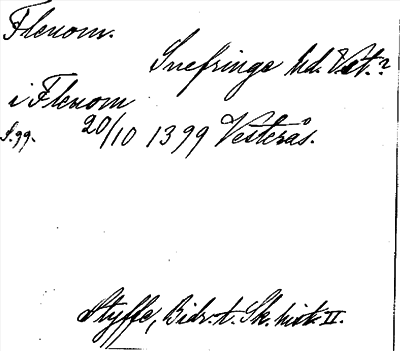 Flenom.
Snefringe hd. Vst.?
i Flenom
s. 99. 20/10 1399 Vesterås.
Styffe, Bidr. t. Sk. hist. II.